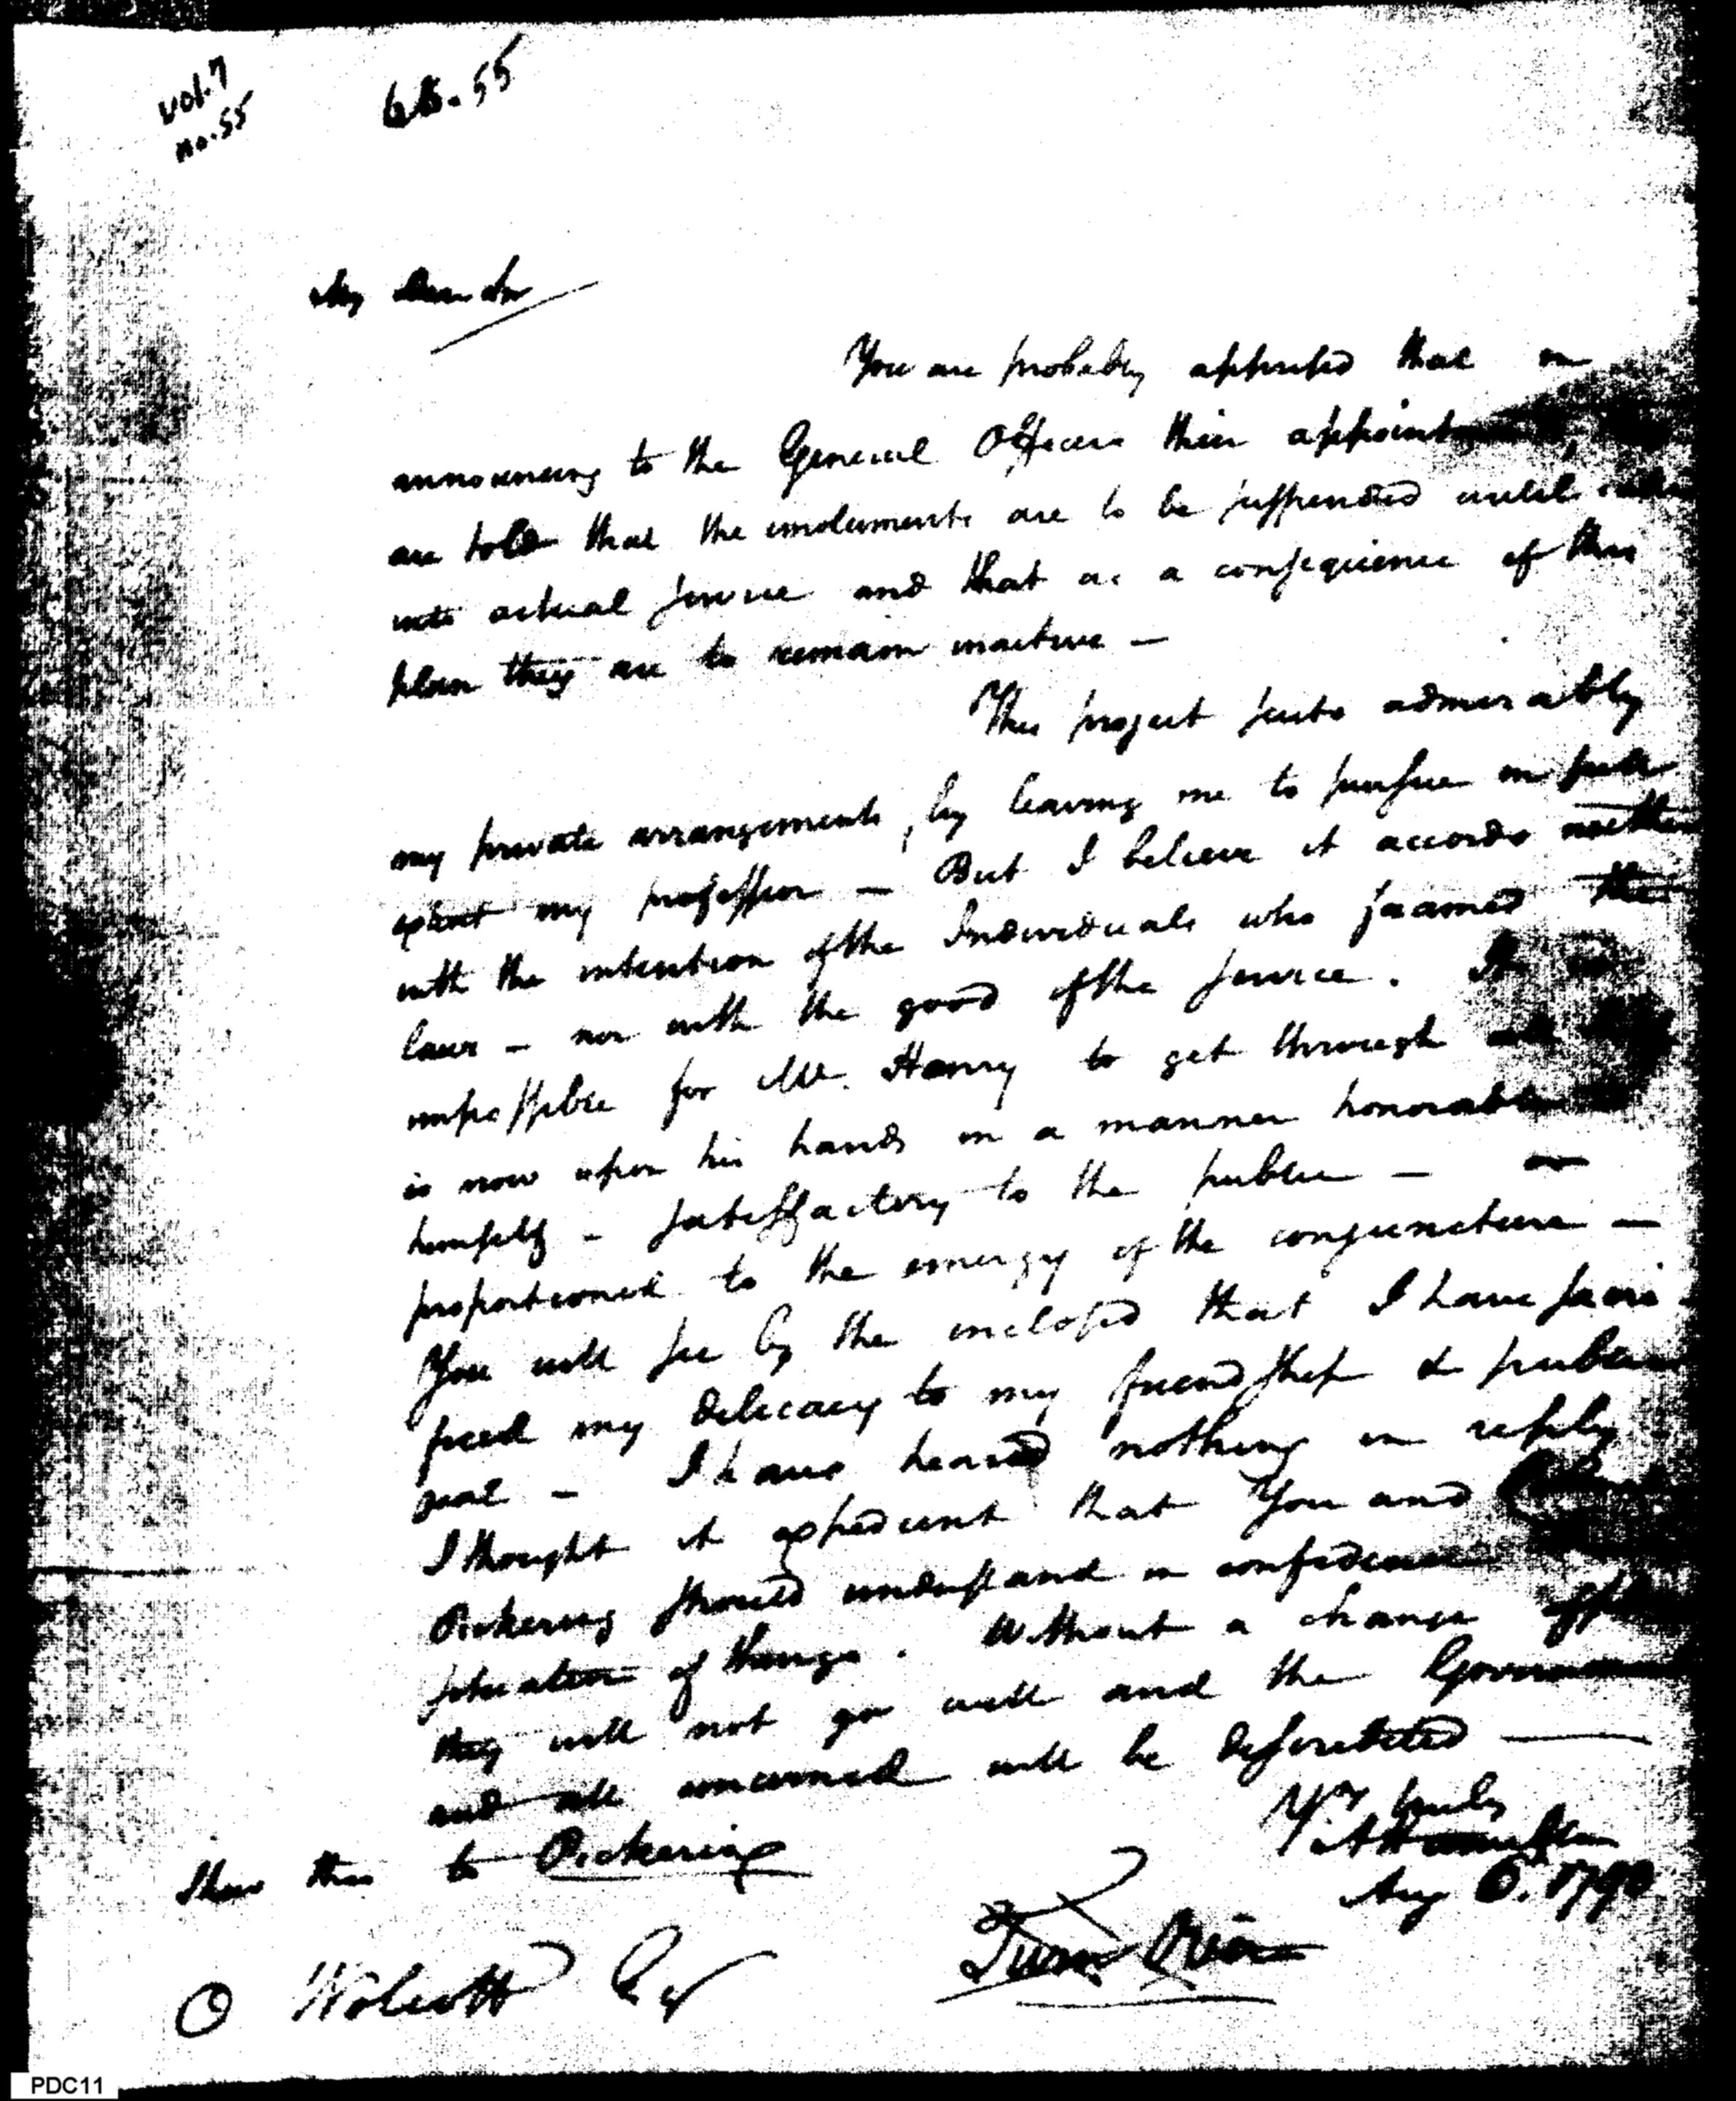 vol. 7
no. 55
55
My Dear Sir
You are probably apprised that in
announcing to the General Officers their appoint
are told that the emoluments are to be suspended until
into actual service and that as a consequence of this
plan they are to remain inactive —
This project suits admirably
my private arrangements, by leaving me to pursue in full
extent my profession — But I believe it accords neither
with the intention of the Individuals who framed the
law — nor with the good of the service. It is
impossible for Mc. Henry to get through all
is now upon his hands in a manner honorable
himself — satisfactory to the public — or
proportioned to the energy of the conjuncture —
You will see by the inclosed that I have sacri
ficed my delicacy to my friendship & public
zeal — I have heared nothing in reply
I thought it expedient that You and
Pickering should understand in confidence
situation of things. Without a change of plan
they will not go well and the Government
and all concerned will be discredited —
Yrs truly
A Hamilton
Aug 6. 1798
Show this to Pickering
O Wolcott Esq
Turn Over
PDC11